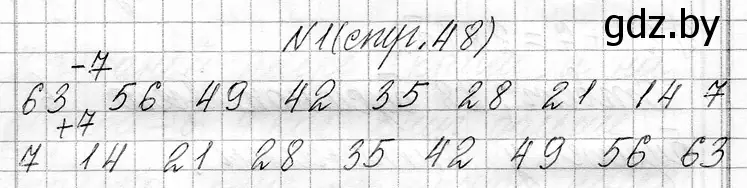 gdz.by
N1(стр.48)
-7
63 56 49 42 35 28 21 14 7
+7
7 14 21 28 35 42 49 56 63